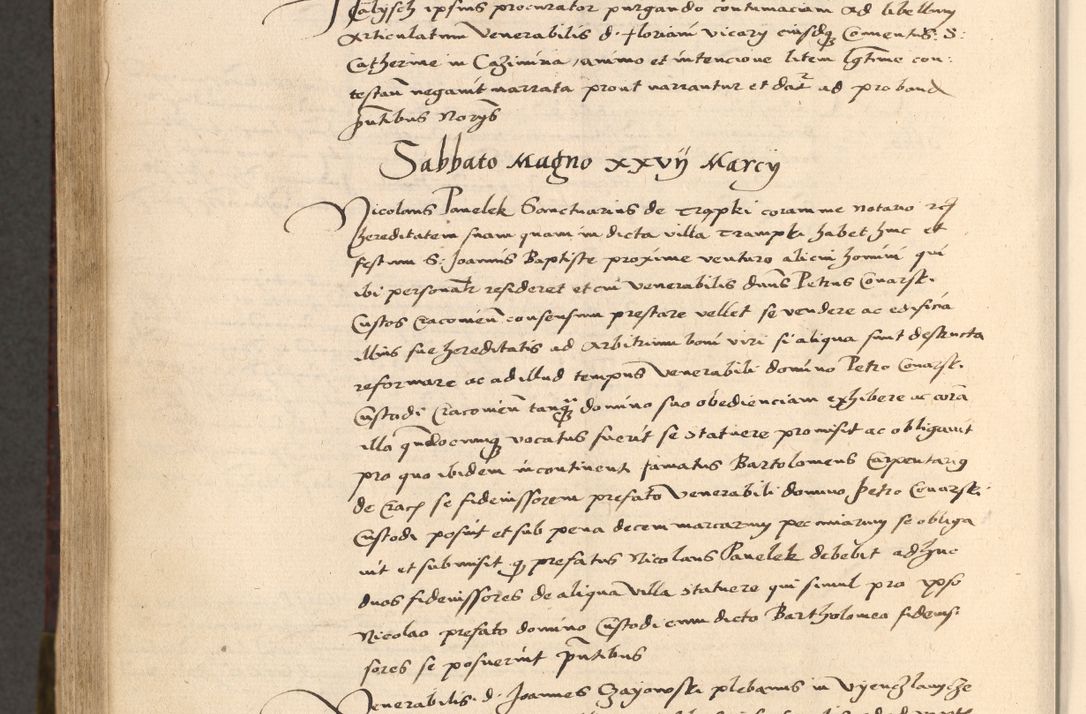 Calijsch ipsius procurator purgando contumaciam ad libellum
Articulatum Venerabilis d. Floriani vicarij eiusdꝫ Conventus S:
Catherine in Cazimiria, animo et intencione litem lgtime con:
testan negavit narrata prout narrantur et datr ad proband
pntibus Norijs
Sabbato Magno xxvij Marcij
Nicolaus Pauelek Sanctuarius de Trąpki coram me Notario
hereditatem suam quam in dicta villa Trampki habet hinc et
festum S: Joannis Baptiste proxime venturo alicui homini qui
ibi personalr resideret et cui Venerabilis dnus Petrus Conarsk:
Custos Cracovien consensum prestare vellet se vendere ac edificia
illius sue hereditatis ad Arbitrium boni viri si aliqua sunt destructa
reformare ac ad illud tempus Venerabili domino Petro Conarsk:
Custodi Cracovien tanqꝫ domino suo obedienciam exhibere ac cora
illo qndocumqꝫ vocatus fuerit se statuere promisit ac obligauit
pro quo ibidem incontinenti famatus Bartolomeus Carpentarius
de Crac se fideiussorem prefato Venerabili domino Petro Conarsk:
Custodi posuit et sub pena decem marcarum pecuniarum se obliga
uit et submisit qꝫ prefatus Nicolaus Pauelek debebit adhuc
duos fideiussores de aliqua villa statuere qui simul pro ipso
Nicolao prefato domino Custodi cum dicto Bartholomeo fideius:
sores se posuerint pntibus
Venerabilis d. Joannes Czayowski plebanus in